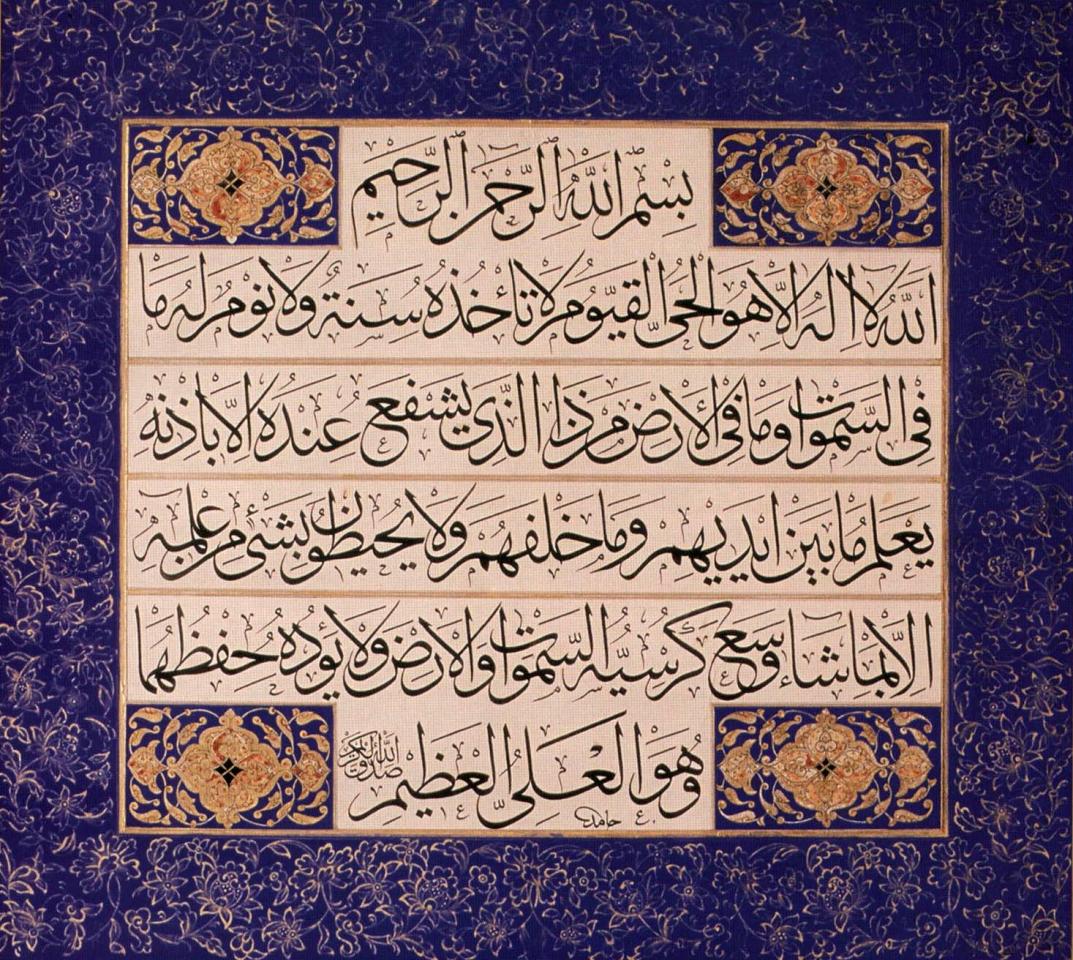 بسم الله الرحمن الرحيم
الله لا اله الا هو الحى القيوم لا تأخذه سنة ولا نوم له ما
فى السموات وما فى الارض من ذا الذى يشفع عنده الا باذنه
يعلم ما بين ايديهم وما خلفهم ولا يحيطون بشئ من علمه
الا بما شاء وسع كرسيه السموات والارض ولا يؤده حفظهما
وهو العلى العظيم
صدق الله
حامد